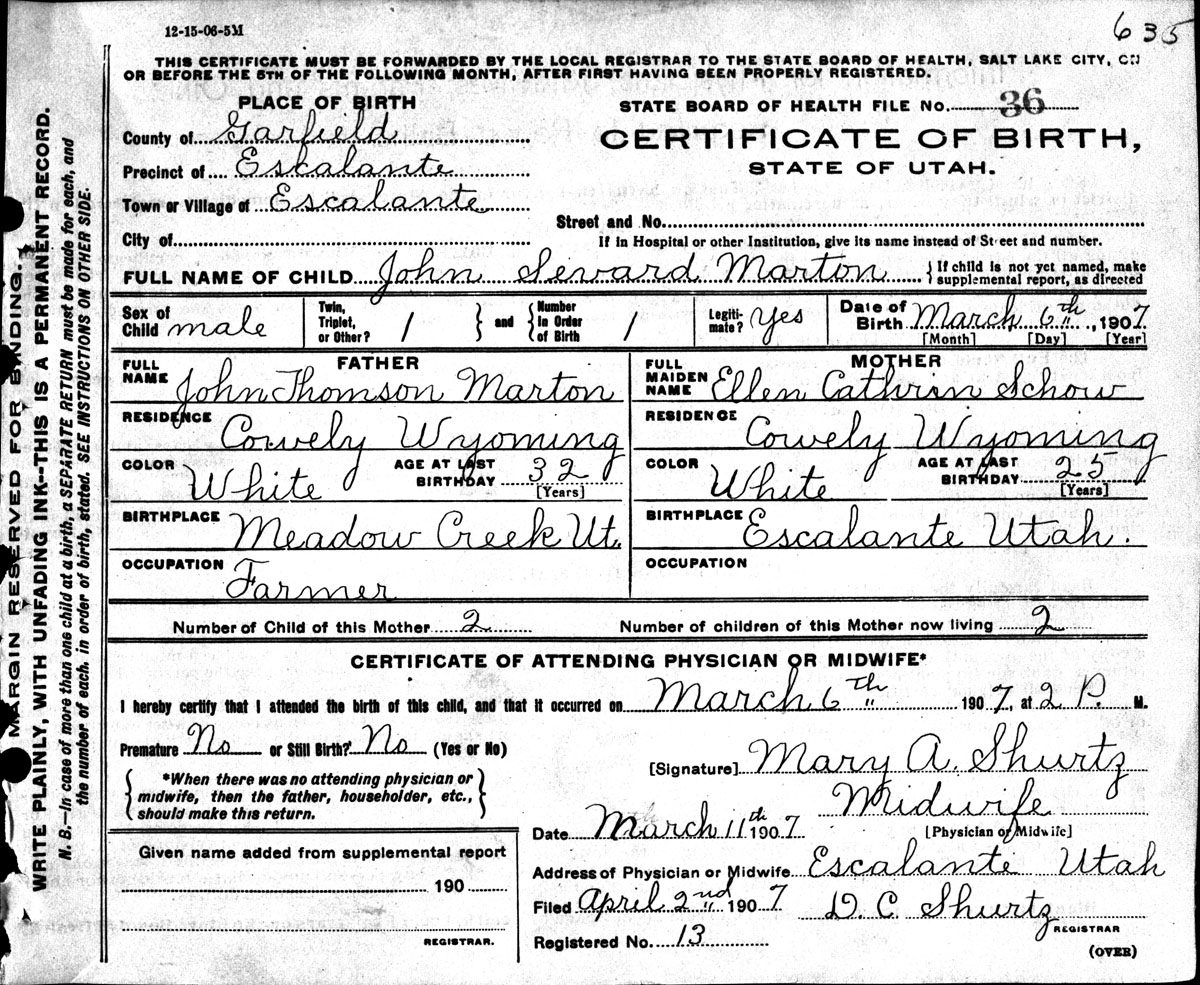 12-15-06-5M
635
THIS CERTIFICATE MUST BE FORWARDED BY THE LOCAL REGISTRAR TO THE STATE BOARD OF HEALTH, SALT LAKE CITY, ON
OR BEFORE THE 5TH OF THE FOLLOWING MONTH, AFTER FIRST HAVING BEEN PROPERLY REGISTERED.
PLACE OF BIRTH
County of Garfield
Precinct of Escalante
Town or Village of Escalante
City of
STATE BOARD OF HEALTH FILE No. 36
CERTIFICATE OF BIRTH,
STATE OF UTAH.
Street and No.
If in Hospital or other Institution, give its name instead of Street and number.
FULL NAME OF CHILD John Seward Marton { If child is not yet named, make
supplemental report, as directed
Sex of Child male
Twin, Triplet, or Other? / } and { Number In Order of Birth /
Legiti-mate? yes
Date of Birth March 6th, 1907
[Month] [Day] [Year]
FATHER
FULL NAME John Thomson Marton
RESIDENCE Cowely Wyoming
COLOR White AGE AT LAST BIRTHDAY 32
[Years]
BIRTHPLACE Meadow Creek Ut.
OCCUPATION Farmer
MOTHER
FULL MAIDEN NAME Ellen Cathrin Schow
RESIDENCE Cowely Wyoming
COLOR White AGE AT LAST BIRTHDAY 25
[Years]
BIRTHPLACE Escalante Utah.
OCCUPATION
Number of Child of this Mother 2 Number of children of this Mother now living 2
CERTIFICATE OF ATTENDING PHYSICIAN OR MIDWIFE*
I hereby certify that I attended the birth of this child, and that it occurred on March 6th 1907, at 2 P. M.
Premature No or Still Birth? No (Yes or No)
{ *When there was no attending physician or
midwife, then the father, householder, etc.,
should make this return. }
[Signature] Mary A. Shurtz
Midwife
[Physician or Midwife]
Date March 11th 1907
Address of Physician or Midwife Escalante Utah
Filed April 2nd 1907 D. C. Shurtz
REGISTRAR
Registered No. 13
(OVER)
Given name added from supplemental report
190
REGISTRAR.
MARGIN RESERVED FOR BINDING.
WRITE PLAINLY, WITH UNFADING INK--THIS IS A PERMANENT RECORD.
N. B.—In case of more than one child at a birth, a SEPARATE RETURN must be made for each, and
the number of each, in order of birth, stated. SEE INSTRUCTIONS ON OTHER SIDE.